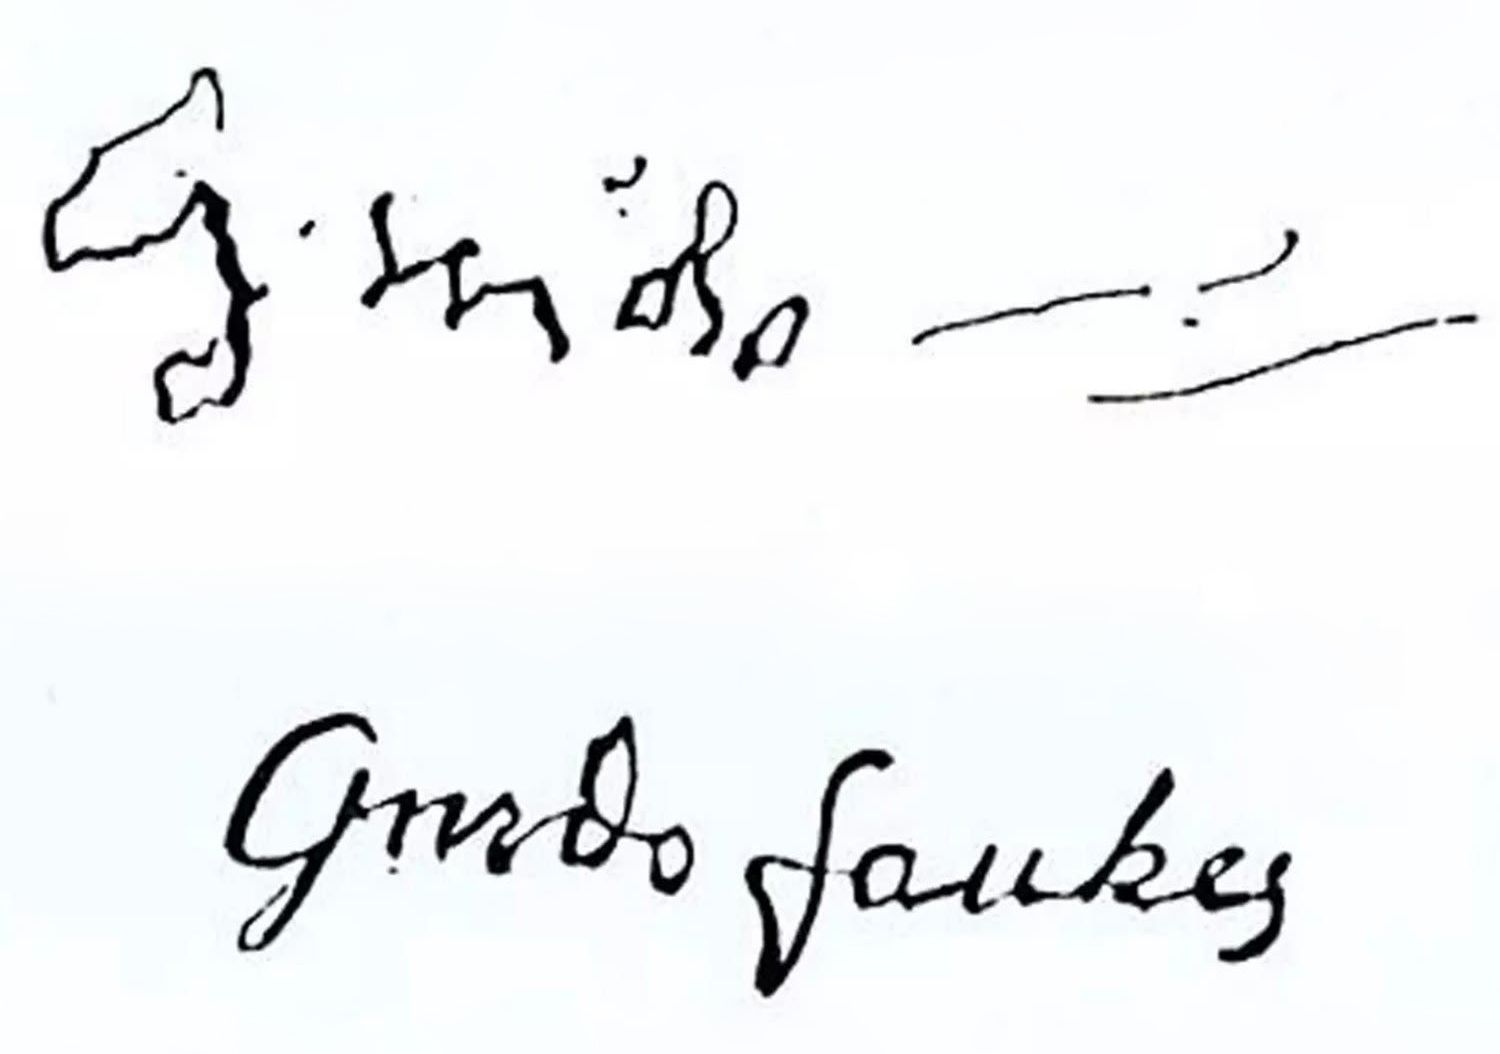 Guido
Guido faukes